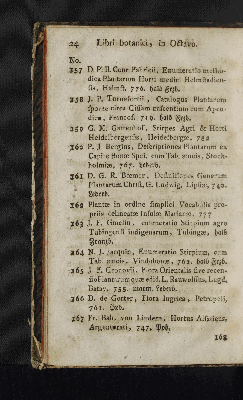 24 Libri botanici, in Octavo.
No.
257 D. P. H. Conr Fabricii, Enumeratio metho-
dica Plantarum Horti medici Helmstadien-
sis, Helmst. 776. halb Frzb.
258 J. P. Tournefortii, Catalogus Plantarum
sponte circa nascentium cum Appen-
dice, Francof. 719. halb Frzb.
259 G. M. Gattenhof, Stirpes Agri & Horti
Heidelbergensis, Heidelbergæ, 782
260 P. J. Bergius, Descriptiones Plantarum ex
Capite Bonæ Spei, cum Tab. æneis, Stock-
holmiæ, 767. Lederb.
261 D. G. R. Bœmer, Definitiones Generum
Plantarum Christ. G. Ludwig, Lipsiæ, 760.
Lederb.
262 Plantæ in ordine simplici Vocabulis pro-
priis delineatæ Insulæ Marianæ. 777
263 J. F. Gmelin, enumeratio Stirpium agro
Tubingensi indigenarum, Tubingæ, halb
Franzb.
264 N. J. Jacquin, Enumeratio Stirpium, cum
Tab. æneis, Vindobonæ, 762. halb Frzb.
265 J. F. Gronovii, Flora Orientalis sive recen-
sio Plantarum quæ edid. L. Rauwolfius, Lugd.
Batav. 755. marm. Lederb.
266 D. de Gorter, Flora Ingrica, Petropoli,
761. Pxb.
267 Fr. Balt. von Lindern, Hortus Alsaticus,
Argentorati, 747. Pxb.
268